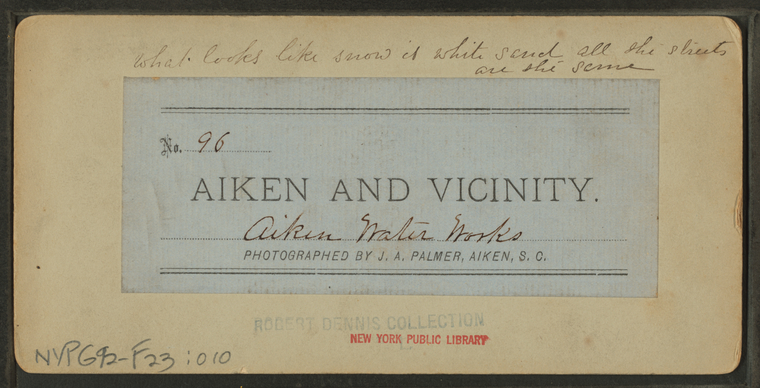 what looks like snow is white sand all the streets
are the same
No. 96
AIKEN AND VICINITY.
Aiken Water Works
PHOTOGRAPHED BY J. A. PALMER, AIKEN, S. C.
ROBERT DENNIS COLLECTION
NEW YORK PUBLIC LIBRARY
NYPG92-F23:010